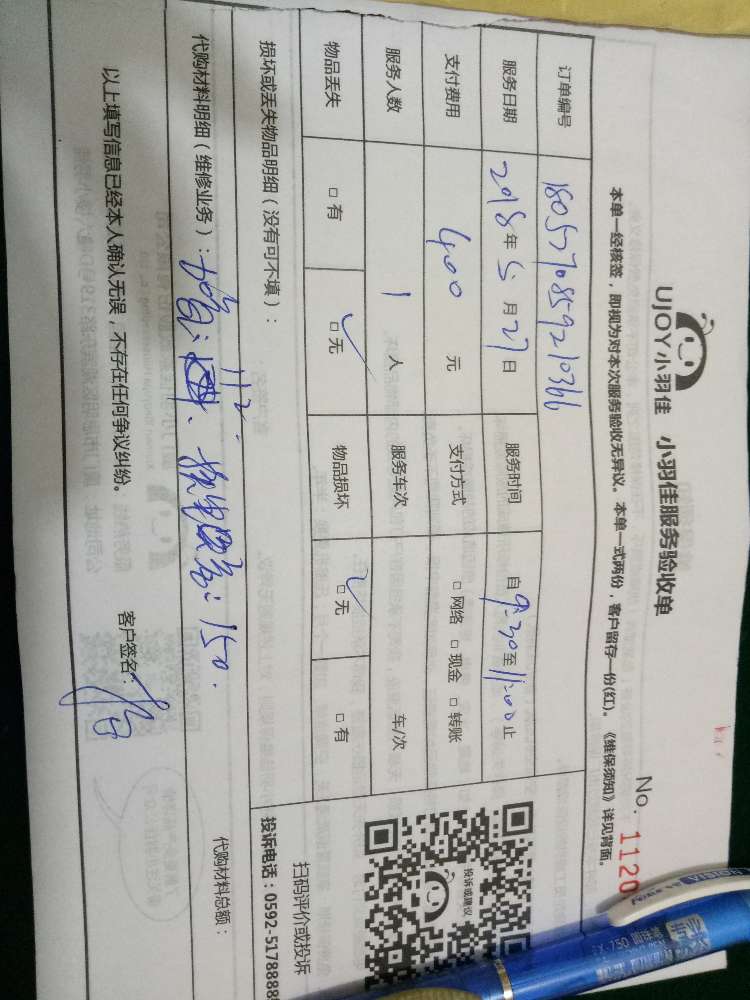 UJOY小羽佳 小羽佳服务验收单
No. 1120
本单一经核签，即视为对本次服务验收无异议。本单一式两份，客户留存一份(红)。《维保须知》详见背面。
订单编号
服务日期 2018年5月27日 服务时间 自9:30至11:00止
支付费用 400元 支付方式 □网络 □现金 □转账
服务人数 1人 服务车次 车/次
物品丢失 □有 □无 物品损坏 □无 □有
投诉或建议
扫码评价或投诉
投诉电话：0592-5178888
损坏或丢失物品明细（没有可不填）：
代购材料明细（维修业务）： 150.
代购材料总额：
以上填写信息已经本人确认无误，不存在任何争议纠纷。
客户签名：